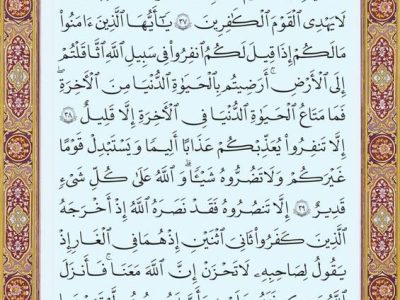 لَا يَهْدِى ٱلْقَوْمَ ٱلْكَٰفِرِينَ ٣٧ يَٰٓأَيُّهَا ٱلَّذِينَ ءَامَنُوا۟
مَا لَكُمْ إِذَا قِيلَ لَكُمُ ٱنفِرُوا۟ فِى سَبِيلِ ٱللَّهِ ٱثَّاقَلْتُمْ
إِلَى ٱلْأَرْضِ ۚ أَرَضِيتُم بِٱلْحَيَوٰةِ ٱلدُّنْيَا مِنَ ٱلْءَاخِرَةِ ۚ
فَمَا مَتَٰعُ ٱلْحَيَوٰةِ ٱلدُّنْيَا فِى ٱلْءَاخِرَةِ إِلَّا قَلِيلٌ ٣٨
إِلَّا تَنفِرُوا۟ يُعَذِّبْكُمْ عَذَابًا أَلِيمًا وَيَسْتَبْدِلْ قَوْمًا
غَيْرَكُمْ وَلَا تَضُرُّوهُ شَيْـًٔا ۗ وَٱللَّهُ عَلَىٰ كُلِّ شَىْءٍ
قَدِيرٌ ٣٩ إِلَّا تَنصُرُوهُ فَقَدْ نَصَرَهُ ٱللَّهُ إِذْ أَخْرَجَهُ
ٱلَّذِينَ كَفَرُوا۟ ثَانِىَ ٱثْنَيْنِ إِذْ هُمَا فِى ٱلْغَارِ إِذْ
يَقُولُ لِصَٰحِبِهِۦ لَا تَحْزَنْ إِنَّ ٱللَّهَ مَعَنَا ۖ فَأَنزَلَ